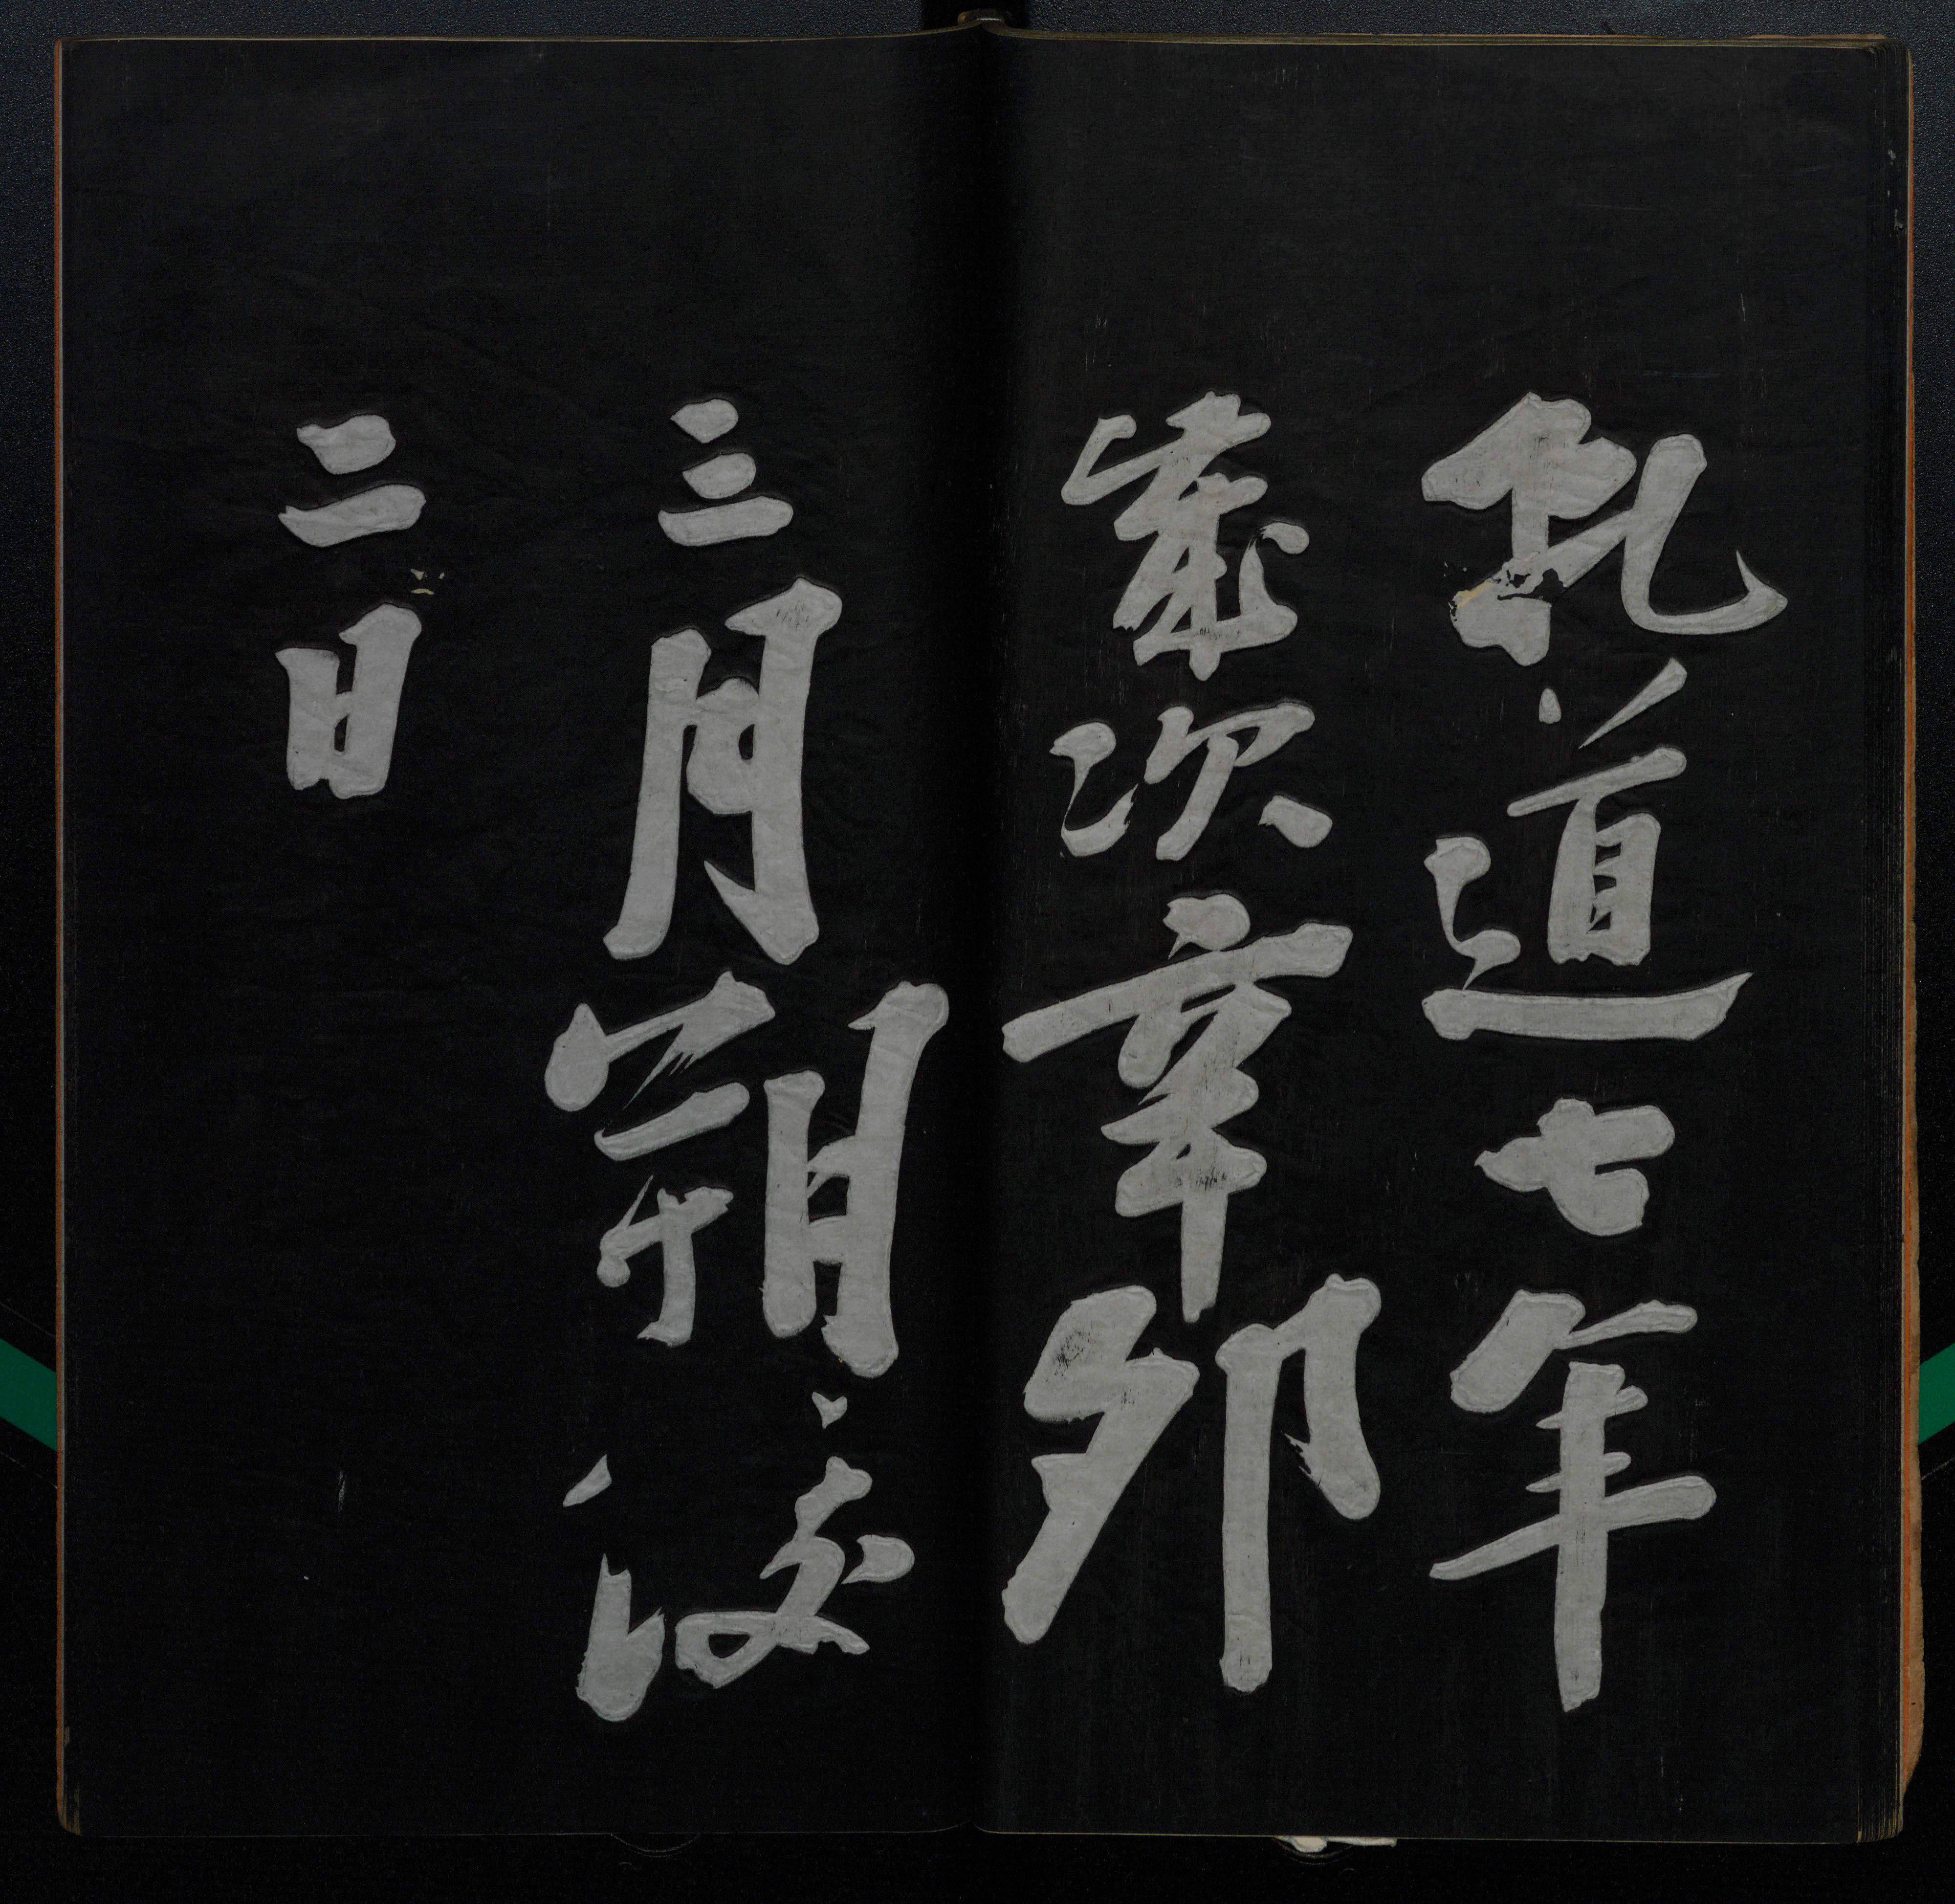 乾道七年
歲次辛卯
三月朔後
二日